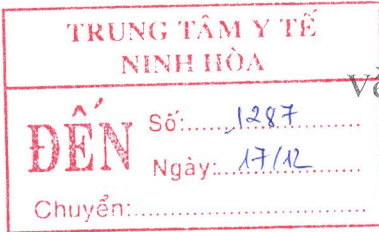 TRUNG TÂM Y TẾ
NINH HÒA
Về
ĐẾN
Số: 1287
Ngày: 17/12
Chuyển: